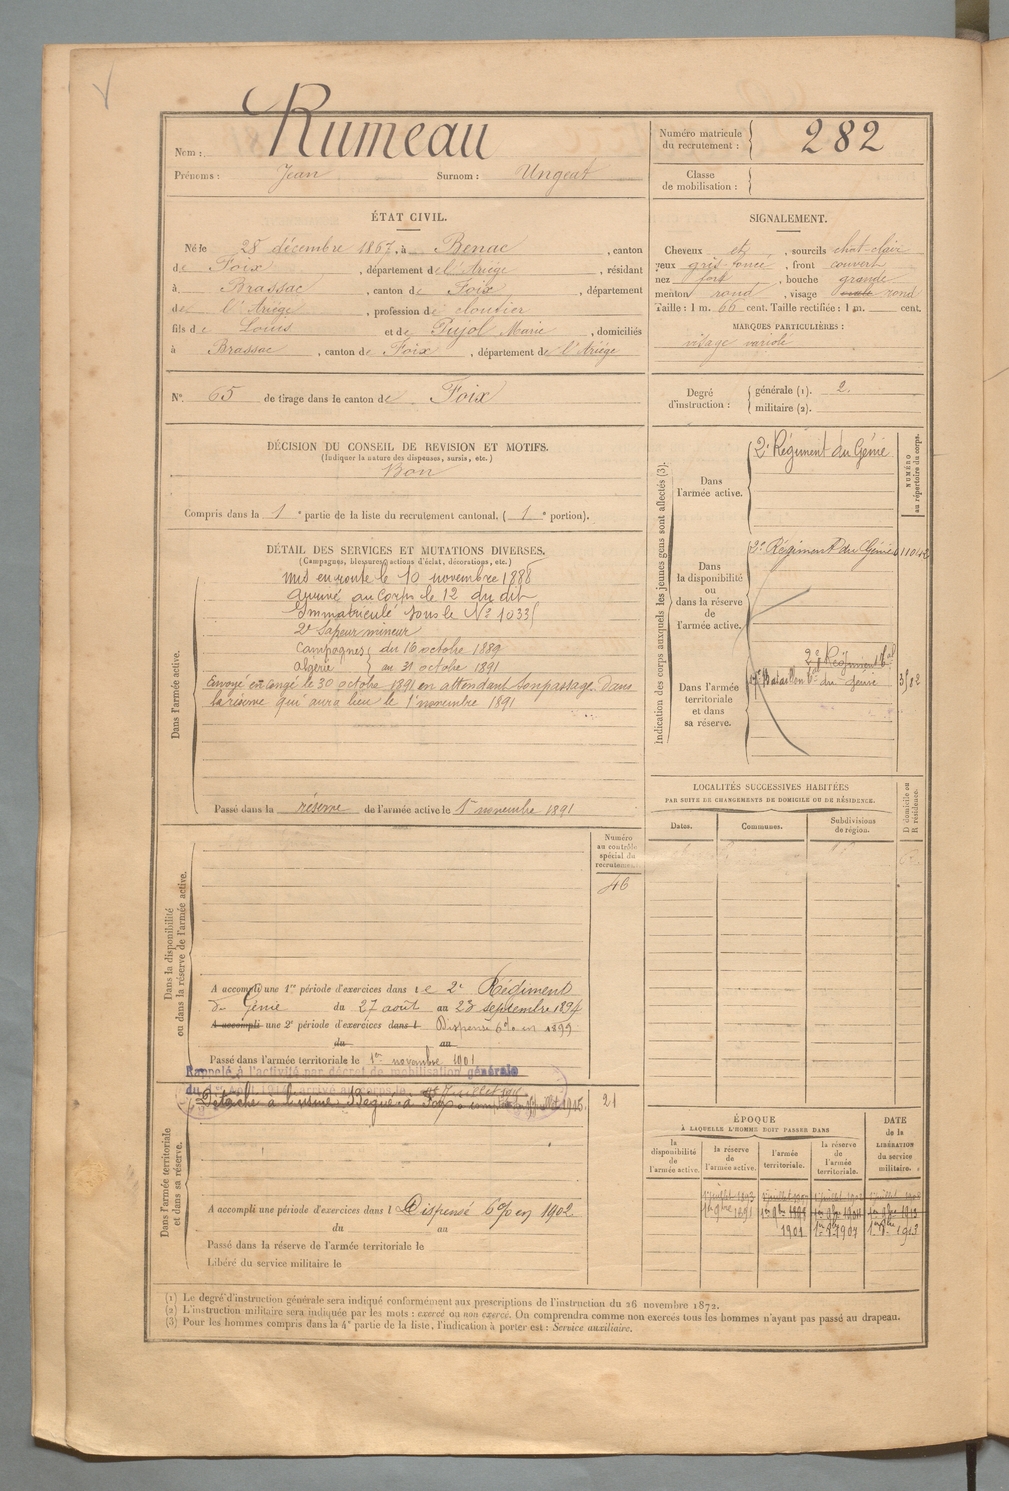 Nom : Rumeau
Prénoms : Jean Surnom : Ungeat
Numéro matricule du recrutement : 282
Classe de mobilisation :
ÉTAT CIVIL.
Né le 28 décembre 1867, à Benac, canton
de Foix, département de l'Ariège, résidant
à Brassac, canton de Foix, département
de l'Ariège, profession de cloutier
fils de Louis et de Pujol Marie, domiciliés
à Brassac, canton de Foix, département de l'Ariège
N° 65 de tirage dans le canton de Foix
SIGNALEMENT.
Cheveux et, sourcils chat-clair
yeux gris-foncé, front couvert
nez fort, bouche grande
menton rond, visage ovale rond
Taille : 1 m. 66 cent. Taille rectifiée : 1 m. cent.
MARQUES PARTICULIÈRES :
visage variolé
Degré d'instruction : générale (1). 2.
militaire (2).
DÉCISION DU CONSEIL DE REVISION ET MOTIFS.
(Indiquer la nature des dispenses, sursis, etc.)
Bon
Compris dans la 1e partie de la liste du recrutement cantonal. (1e portion).
DÉTAIL DES SERVICES ET MUTATIONS DIVERSES.
(Campagnes, blessures, actions d'éclat, décorations, etc.)
Dans l'armée active.
Mis en route le 10 novembre 1888
Arrivé au Corps le 12 du dit
Immatriculé sous le N° 1033
2e Sapeur mineur
Campagnes du 16 octobre 1889
Algérie au 31 octobre 1891
Envoyé en congé le 30 octobre 1891 en attendant son passage Dans
la réserve qui aura lieu le 1r novembre 1891
Passé dans la réserve de l'armée active le 1r novembre 1891
Indication des corps auxquels les jeunes gens sont affectés (3).
NUMÉRO au répertoire du corps.
Dans l'armée active.
2e Régiment du Génie
Dans la disponibilité ou dans la réserve de l'armée active.
2e Régiment du Génie
Dans l'armée territoriale et dans sa réserve.
2e Régiment
Bataillon du Génie
LOCALITÉS SUCCESSIVES HABITÉES
PAR SUITE DE CHANGEMENTS DE DOMICILE OU DE RÉSIDENCE.
Dates. Communes. Subdivisions de région. D domicile ou R résidence.
Dans la disponibilité ou dans la réserve de l'armée active.
Numéro au contrôle spécial du recrutement
46
A accompli une 1re période d'exercices dans le 2e Régiment
du Génie du 27 août au 23 septembre 1894
A accompli une 2e période d'exercices dans l Dispensé 6% en 1899
du au
Passé dans l'armée territoriale le 1er novembre 1901
Rappelé à l'activité par décret de mobilisation générale
Dans l'armée territoriale et dans sa réserve.
Détaché à l'usine Bagué à
21
A accompli une période d'exercices dans l Dispensé 6% en 1902
du au
Passé dans la réserve de l'armée territoriale le
Libéré du service militaire le
ÉPOQUE
À LAQUELLE L'HOMME DOIT PASSER DANS
la disponibilité de l'armée active. la réserve de l'armée active. l'armée territoriale. la réserve de l'armée territoriale.
DATE de la LIBÉRATION du service militaire.
(1) Le degré d'instruction générale sera indiqué conformément aux prescriptions de l'instruction du 26 novembre 1872.
(2) L'instruction militaire sera indiquée par les mots : exercé ou non exercé. On comprendra comme non exercés tous les hommes n'ayant pas passé au drapeau.
(3) Pour les hommes compris dans la 4e partie de la liste, l'indication à porter est : Service auxiliaire.